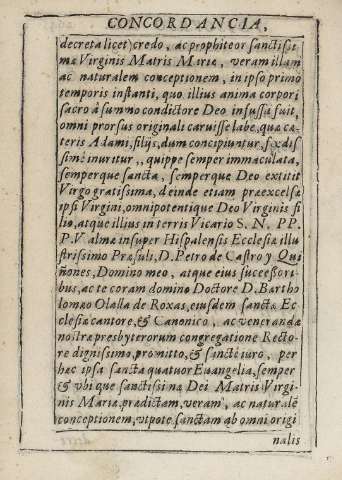 CONCORDANCIA,
decreta licet) credo, ac prophiteor sanctissi
mæ Virginis Matris Mariæ, veram illam
ac naturalem conceptionem, in ipso primo
temporis instanti, quo illius anima corpori
sacro à summo conditore Deo infussa fuit,
omni prorsus originali caruisse labe, qua cæ-
teris Adami, filijs, dum concipiuntur, fædis
simè inuritur,, quippe semper immaculata,
semperque sancta, semperque Deo extitit
Virgo gratissima, deinde etiam præexcelsæ
ipsi Virgini, omnipotentique Deo Virginis fi
lio, atque illius in terris Vicario S. N. PP.
P.V. almæ insuper Hispalensis Ecclesiæ illu
strissimo Præsuli, D. Petro de Castro y Qui
ñones, Domino meo, atque eius successori-
bus, ac te coram domino Doctore D. Bartho
lomæo Olalla de Roxas, eiusdem sanctæ Ec
clesiæ cantore, & Canonico, ac venerandæ
nostræ presbyterorum congregatione Recto-
re dignissimo, promitto, & sanctè iuro, per
hæc ipsa sancta quatuor Euangelia, semper
& vbique sanctissimæ Dei Matris Virgi-
nis Mariæ, prædictam, veram, ac naturalẽ
conceptionem, vtpote, sanctam ab omni origi
nalis